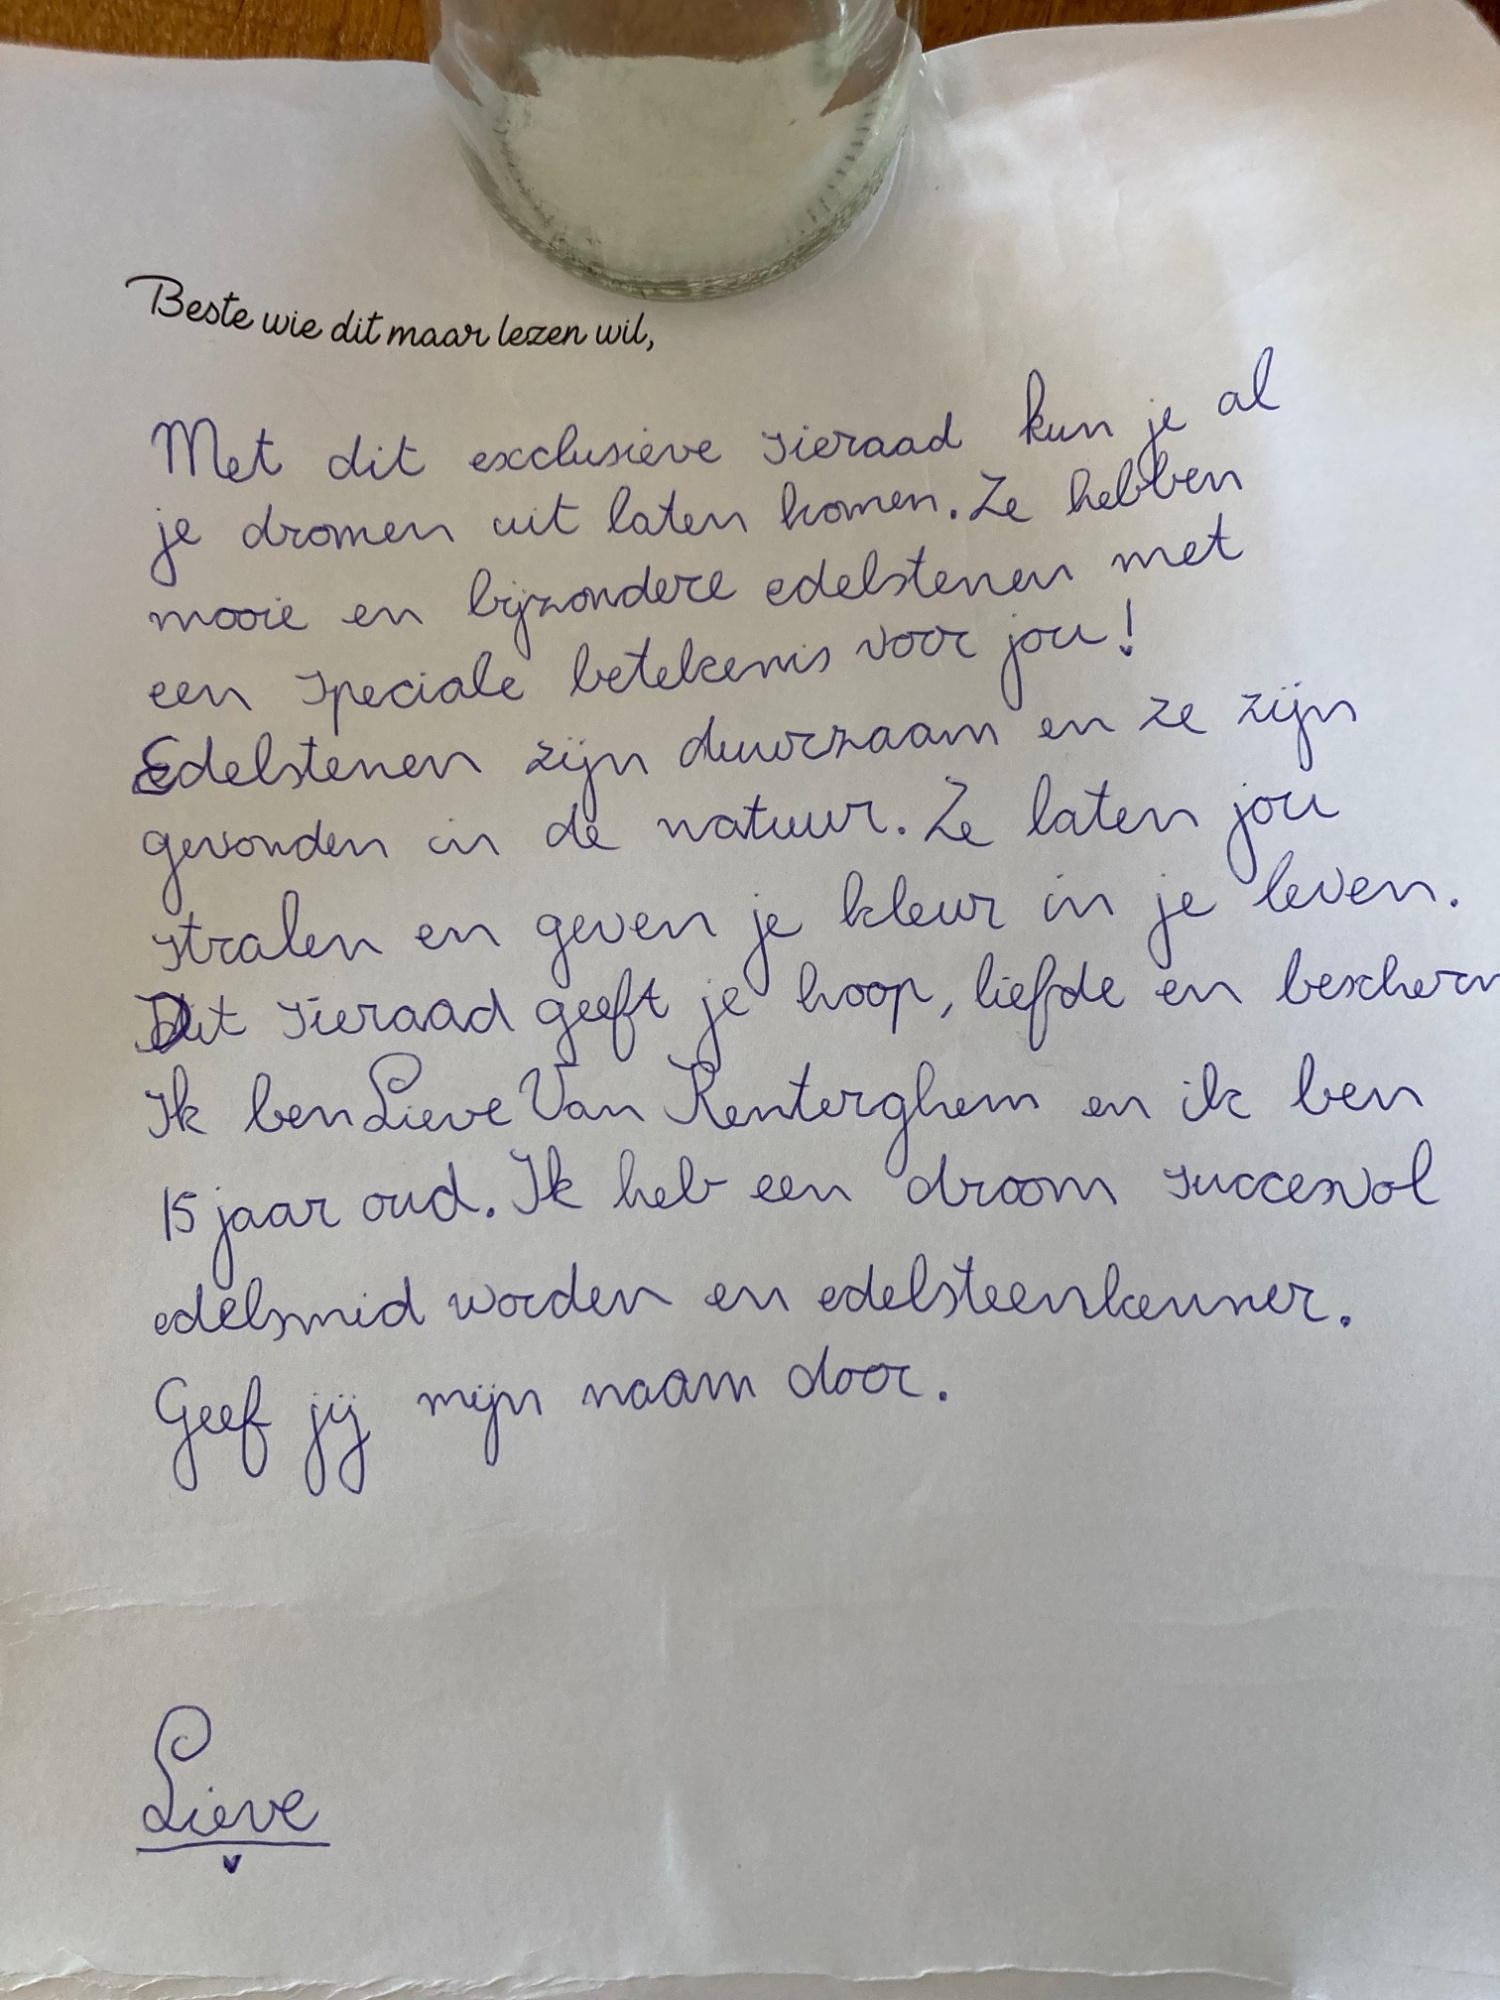 Beste wie dit maar lezen wil,
Met dit exclusieve sieraad kun je al
je dromen uit laten komen. Ze hebben
mooie en bijzondere edelstenen met
een speciale betekenis voor jou!
Edelstenen zijn duurzaam en ze zijn
gevonden in de natuur. Ze laten jou
stralen en geven je kleur in je leven.
Dit sieraad geeft je hoop, liefde en bescherm
Ik ben Lieve Van Renterghem en ik ben
15 jaar oud. Ik heb een droom succesvol
edelsmid worden en edelsteenkenner.
Geef jij mijn naam door.
Lieve